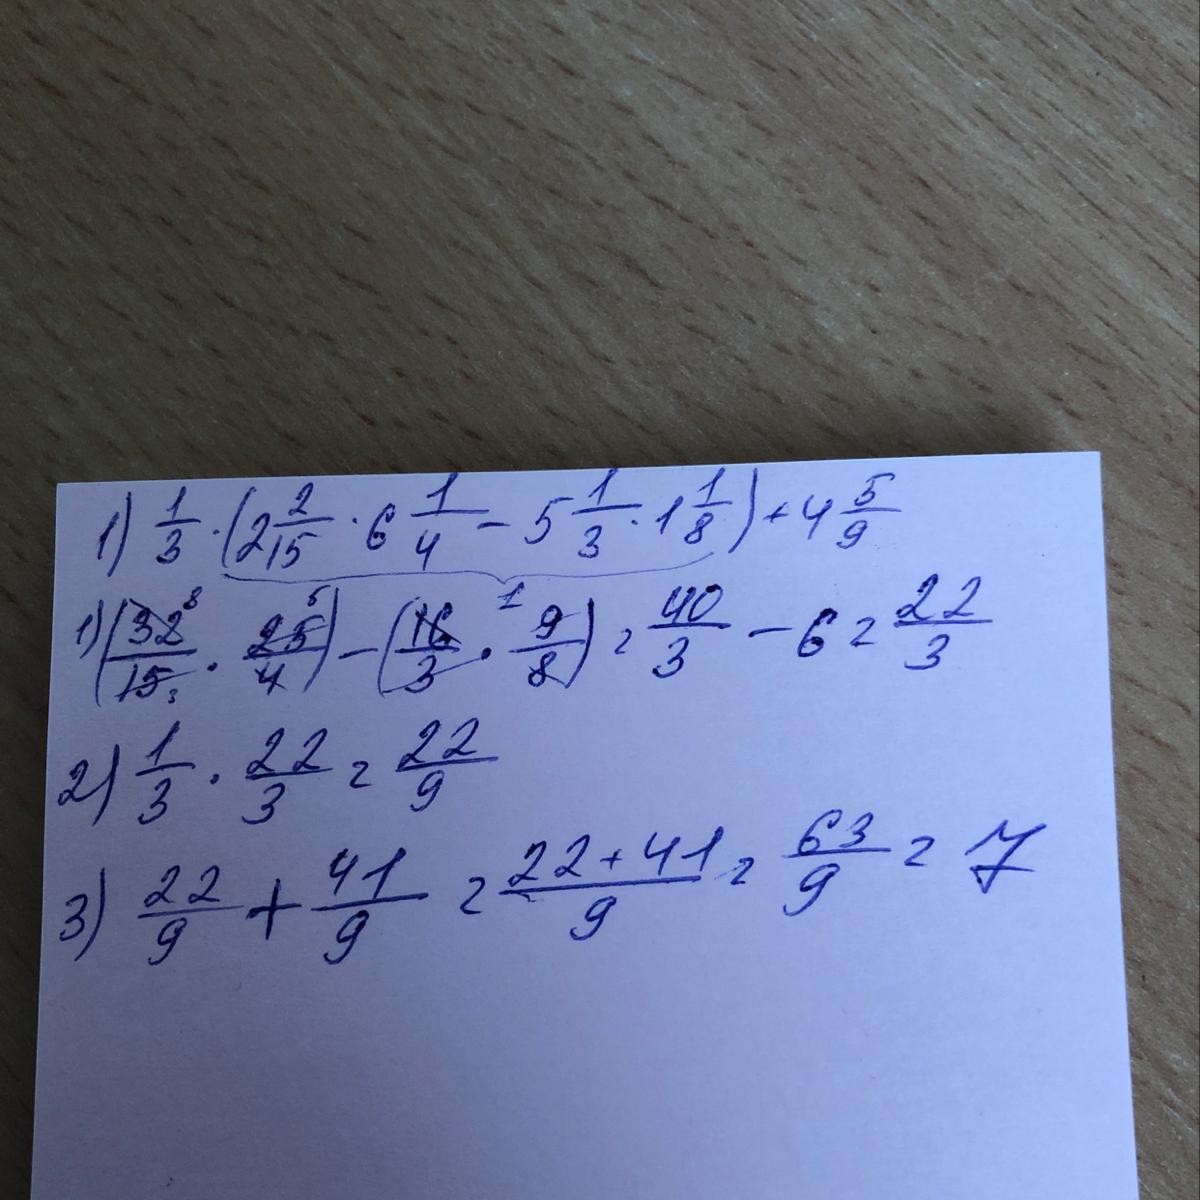 1) 1/3 · (2 2/15 · 6 1/4 - 5 1/3 · 1 1/8) + 4 5/9
1) (32 8/15 3 · 25 5/4) - (16/3 · 1 9/8) = 40/3 - 6 = 22/3
2) 1/3 · 22/3 = 22/9
3) 22/9 + 41/9 = 22+41/9 = 63/9 = 7